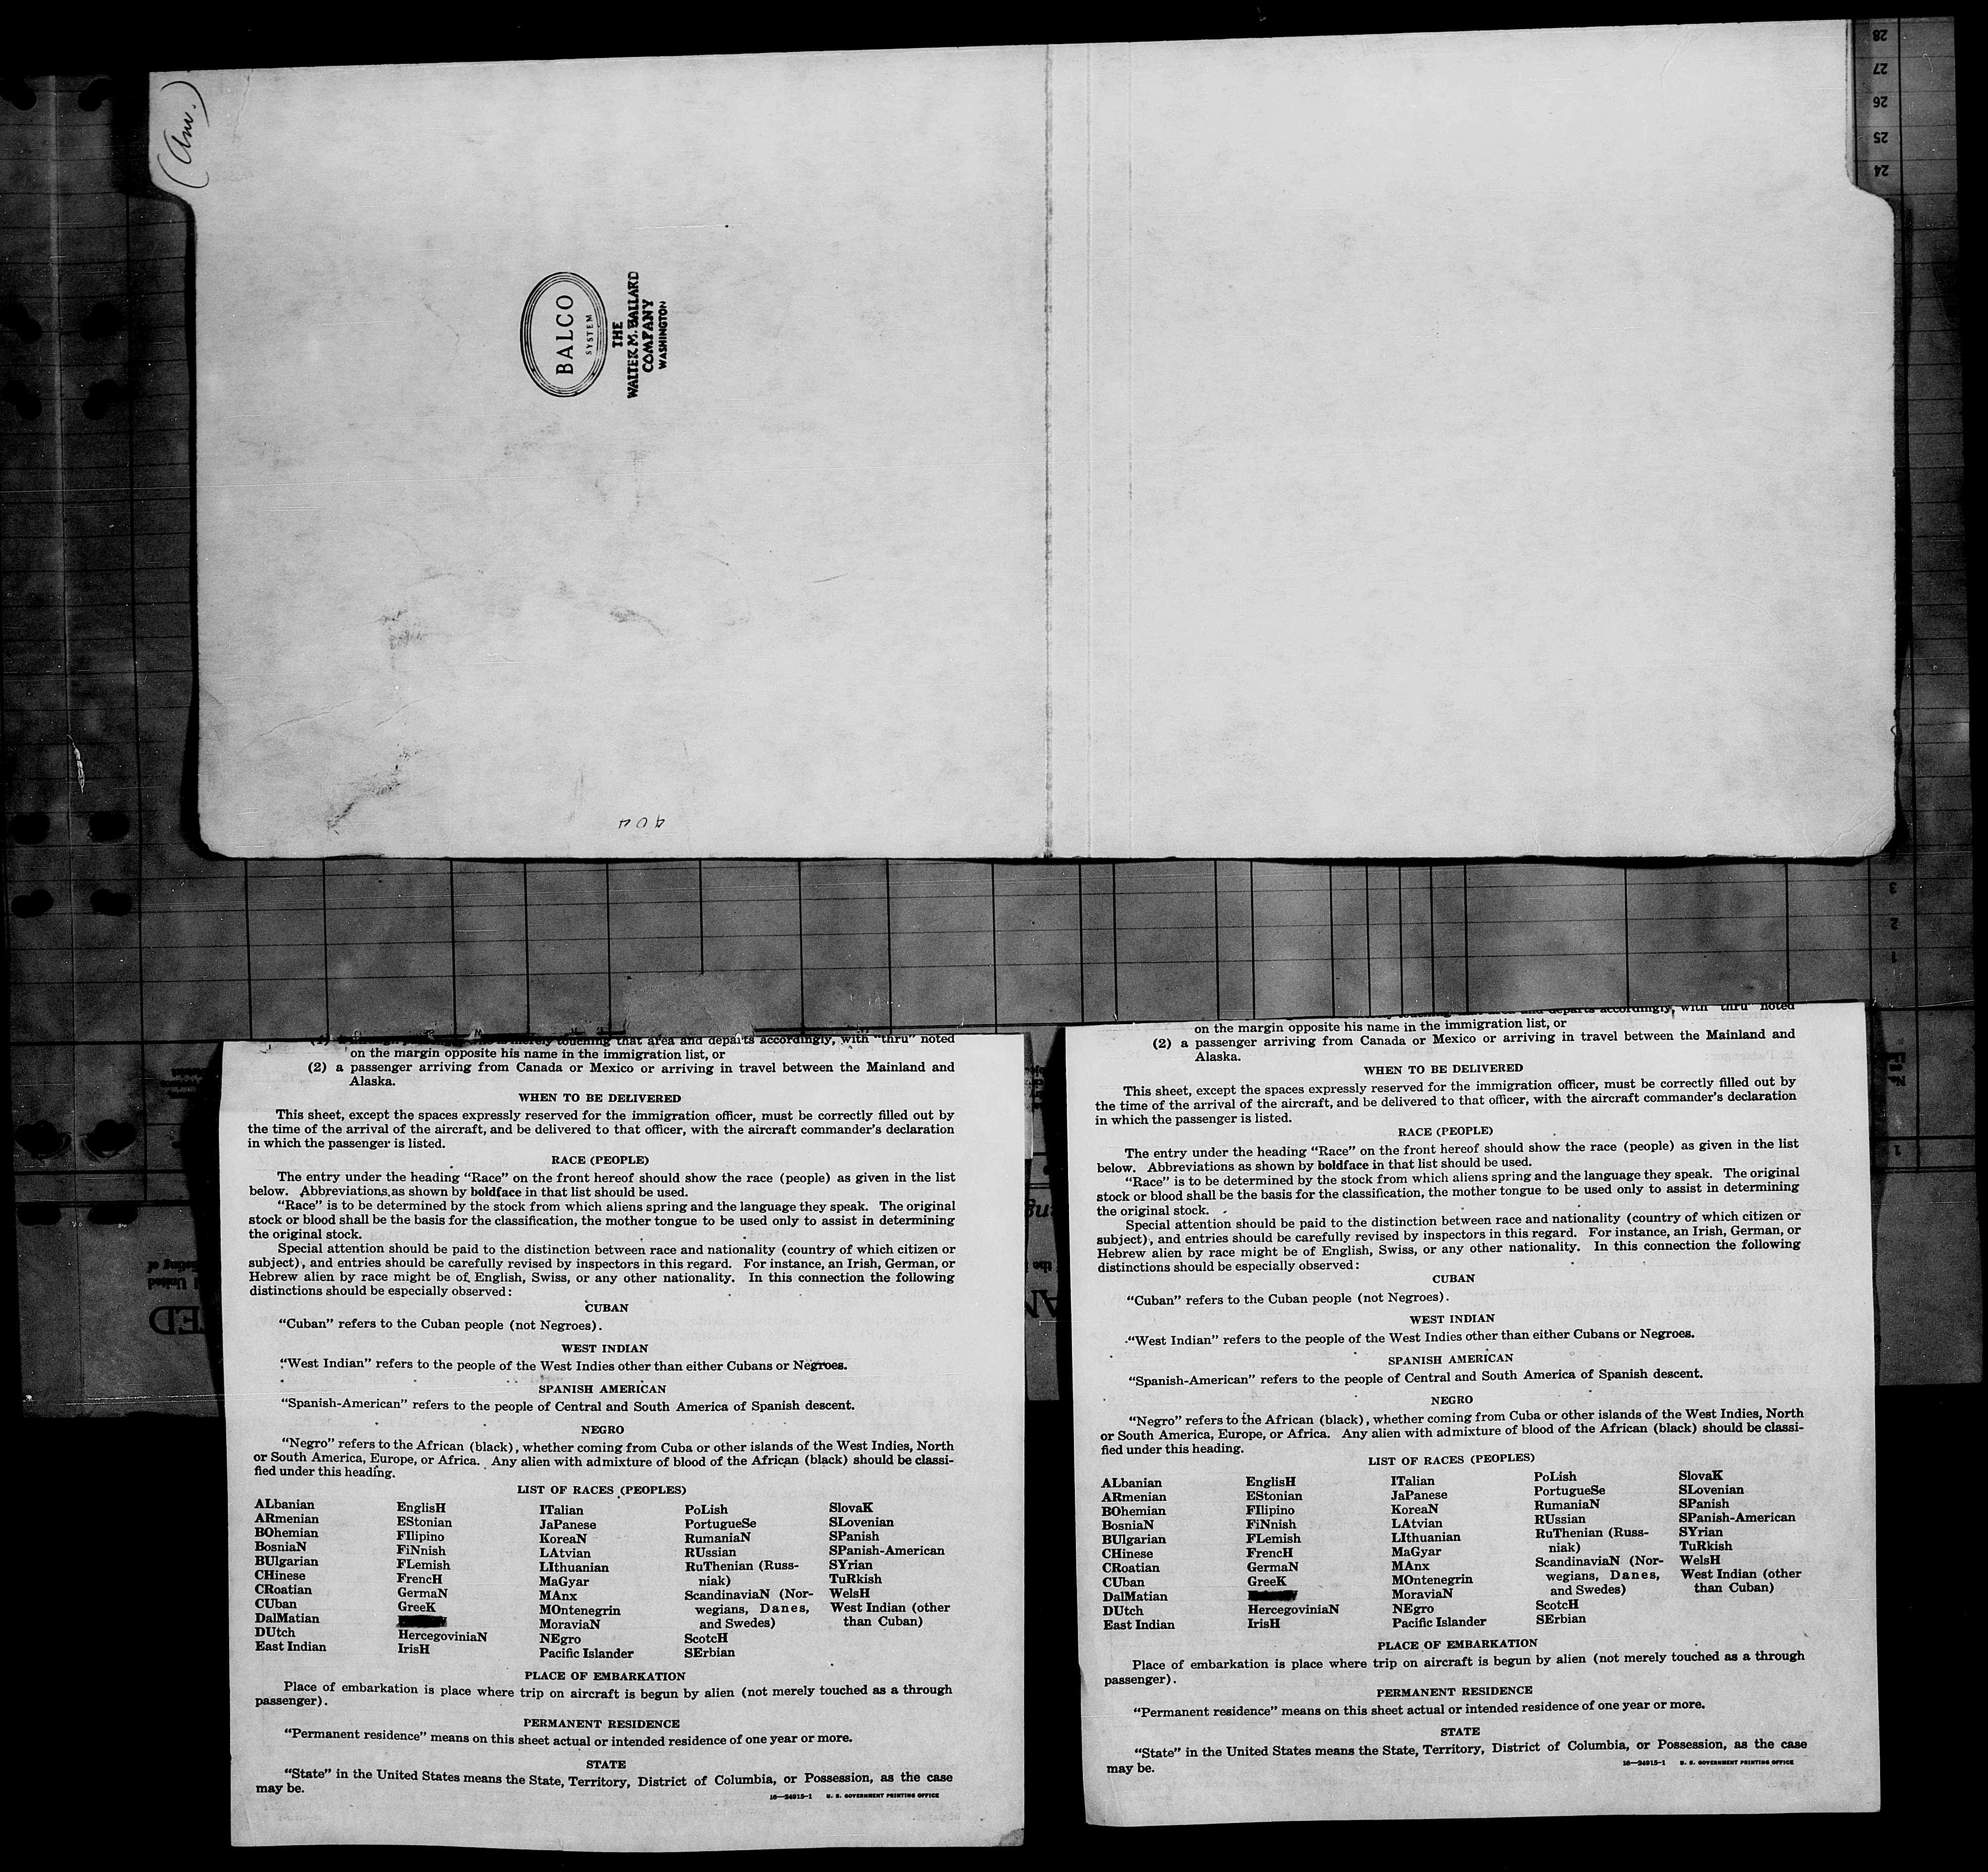 (Am.)
BALCO
SYSTEM
THE
WALTER M. BALLARD
COMPANY
WASHINGTON
404
28
27
26
25
24
3
2
1
1
merely touching that area and departs accordingly, with "thru" noted
on the margin opposite his name in the immigration list, or
(2) a passenger arriving from Canada or Mexico or arriving in travel between the Mainland and
Alaska.
WHEN TO BE DELIVERED
This sheet, except the spaces expressly reserved for the immigration officer, must be correctly filled out by
the time of the arrival of the aircraft, and be delivered to that officer, with the aircraft commander's declaration
in which the passenger is listed.
RACE (PEOPLE)
The entry under the heading "Race" on the front hereof should show the race (people) as given in the list
below. Abbreviations as shown by boldface in that list should be used.
"Race" is to be determined by the stock from which aliens spring and the language they speak. The original
stock or blood shall be the basis for the classification, the mother tongue to be used only to assist in determining
the original stock.
Special attention should be paid to the distinction between race and nationality (country of which citizen or
subject), and entries should be carefully revised by inspectors in this regard. For instance, an Irish, German, or
Hebrew alien by race might be of English, Swiss, or any other nationality. In this connection the following
distinctions should be especially observed:
CUBAN
"Cuban" refers to the Cuban people (not Negroes).
WEST INDIAN
"West Indian" refers to the people of the West Indies other than either Cubans or Negroes.
SPANISH AMERICAN
"Spanish-American" refers to the people of Central and South America of Spanish descent.
NEGRO
"Negro" refers to the African (black), whether coming from Cuba or other islands of the West Indies, North
or South America, Europe, or Africa. Any alien with admixture of blood of the African (black) should be classi-
fied under this heading.
LIST OF RACES (PEOPLES)
ALbanian
ARmenian
BOhemian
BosniaN
BUlgarian
CHinese
CRoatian
CUban
DalMatian
DUtch
East Indian
EnglisH
EStonian
FIlipino
FiNnish
FLemish
FrencH
GermaN
GreeK
HercegoviniaN
IrisH
ITalian
JaPanese
KoreaN
LAtvian
LIthuanian
MaGyar
MAnx
MOntenegrin
MoraviaN
NEgro
Pacific Islander
PoLish
PortugueSe
RumaniaN
RUssian
RuThenian (Russ-
niak)
ScandinaviaN (Nor-
wegians, Danes,
and Swedes)
ScotcH
SErbian
SlovaK
SLovenian
SPanish
SPanish-American
SYrian
TuRkish
WelsH
West Indian (other
than Cuban)
PLACE OF EMBARKATION
Place of embarkation is place where trip on aircraft is begun by alien (not merely touched as a through
passenger).
PERMANENT RESIDENCE
"Permanent residence" means on this sheet actual or intended residence of one year or more.
STATE
"State" in the United States means the State, Territory, District of Columbia, or Possession, as the case
may be.
16—24915-1 U. S. GOVERNMENT PRINTING OFFICE
touching that area and departs accordingly, with "thru" noted
on the margin opposite his name in the immigration list, or
(2) a passenger arriving from Canada or Mexico or arriving in travel between the Mainland and
Alaska.
WHEN TO BE DELIVERED
This sheet, except the spaces expressly reserved for the immigration officer, must be correctly filled out by
the time of the arrival of the aircraft, and be delivered to that officer, with the aircraft commander's declaration
in which the passenger is listed.
RACE (PEOPLE)
The entry under the heading "Race" on the front hereof should show the race (people) as given in the list
below. Abbreviations as shown by boldface in that list should be used.
"Race" is to be determined by the stock from which aliens spring and the language they speak. The original
stock or blood shall be the basis for the classification, the mother tongue to be used only to assist in determining
the original stock.
Special attention should be paid to the distinction between race and nationality (country of which citizen or
subject), and entries should be carefully revised by inspectors in this regard. For instance, an Irish, German, or
Hebrew alien by race might be of English, Swiss, or any other nationality. In this connection the following
distinctions should be especially observed:
CUBAN
"Cuban" refers to the Cuban people (not Negroes).
WEST INDIAN
"West Indian" refers to the people of the West Indies other than either Cubans or Negroes.
SPANISH AMERICAN
"Spanish-American" refers to the people of Central and South America of Spanish descent.
NEGRO
"Negro" refers to the African (black), whether coming from Cuba or other islands of the West Indies, North
or South America, Europe, or Africa. Any alien with admixture of blood of the African (black) should be classi-
fied under this heading.
LIST OF RACES (PEOPLES)
ALbanian
ARmenian
BOhemian
BosniaN
BUlgarian
CHinese
CRoatian
CUban
DalMatian
DUtch
East Indian
EnglisH
EStonian
FIlipino
FiNnish
FLemish
FrencH
GermaN
GreeK
HercegoviniaN
IrisH
ITalian
JaPanese
KoreaN
LAtvian
LIthuanian
MaGyar
MAnx
MOntenegrin
MoraviaN
NEgro
Pacific Islander
PoLish
PortugueSe
RumaniaN
RUssian
RuThenian (Russ-
niak)
ScandinaviaN (Nor-
wegians, Danes,
and Swedes)
ScotcH
SErbian
SlovaK
SLovenian
SPanish
SPanish-American
SYrian
TuRkish
WelsH
West Indian (other
than Cuban)
PLACE OF EMBARKATION
Place of embarkation is place where trip on aircraft is begun by alien (not merely touched as a through
passenger).
PERMANENT RESIDENCE
"Permanent residence" means on this sheet actual or intended residence of one year or more.
STATE
"State" in the United States means the State, Territory, District of Columbia, or Possession, as the case
may be.
16—24915-1 U. S. GOVERNMENT PRINTING OFFICE